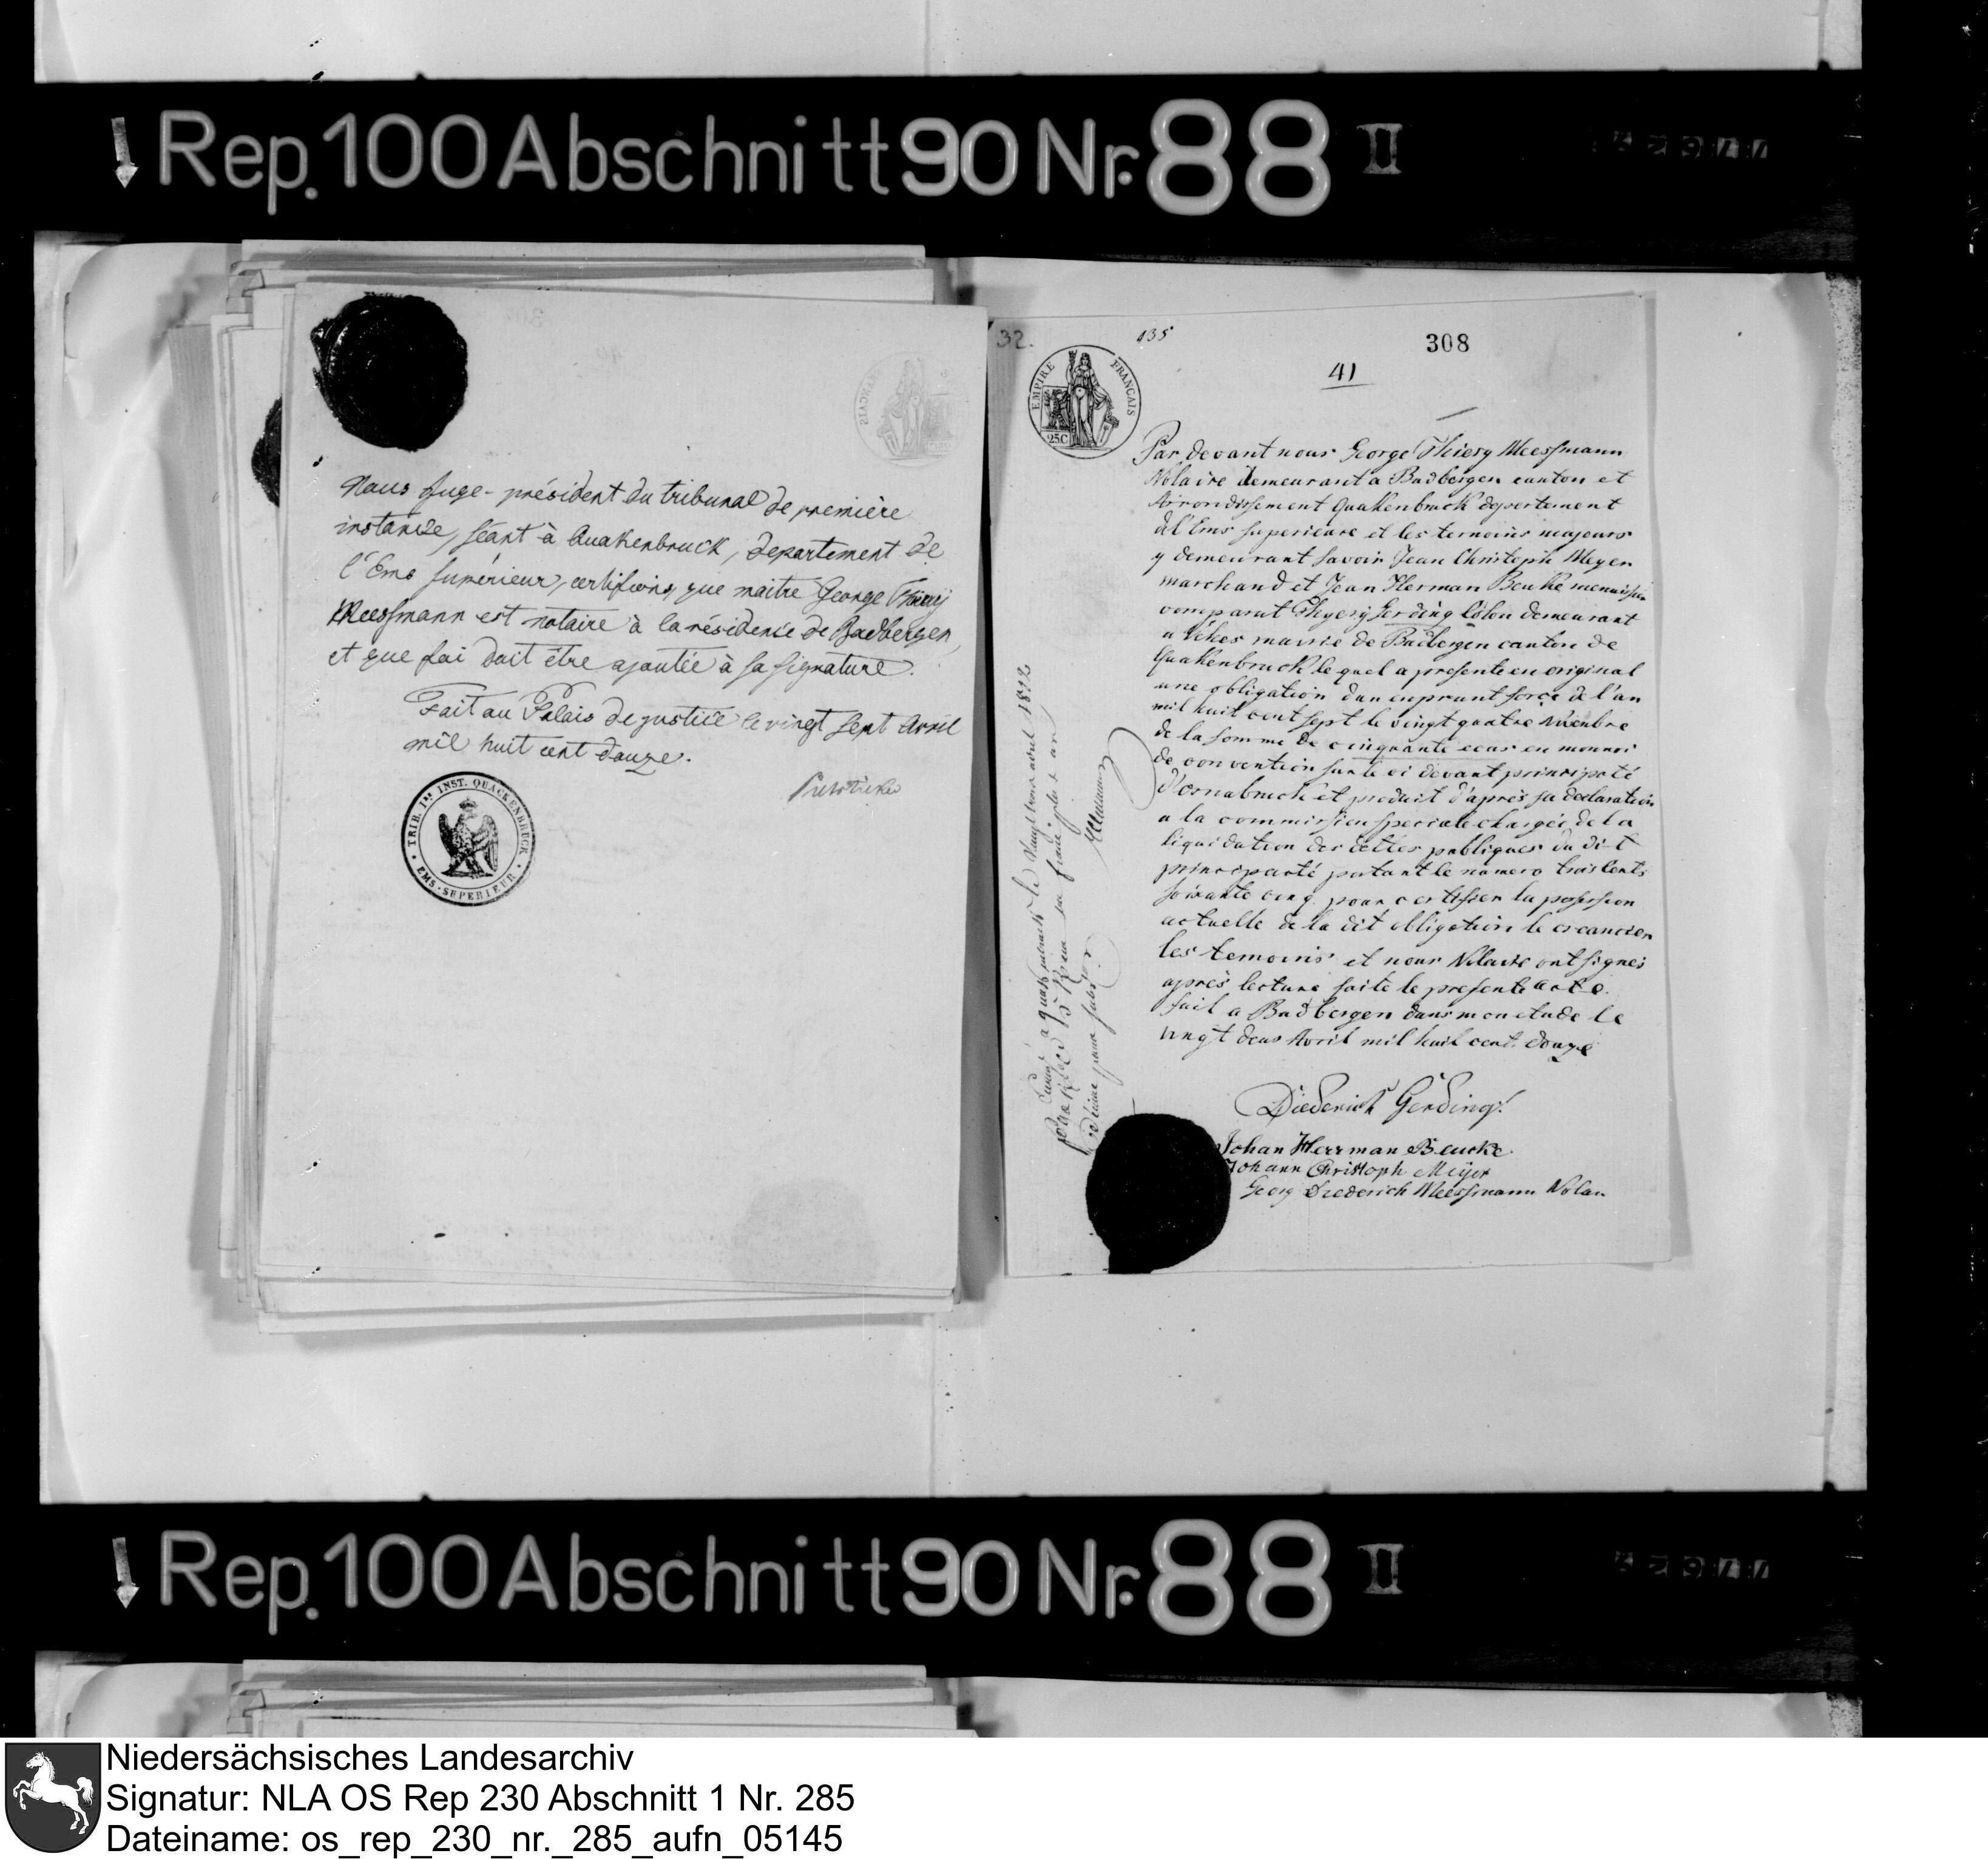 Rep. 100 Abschnitt 90 Nr. 88 II
Nous Juge-président du tribunal de première
instance, séant à Quakenbruck, departement de
l'Ems supérieur, certifions, que maitre George Thierÿ
Meessmann est notaire à la résidence de Badbergen,
et que foi doit être ajoutée à sa signature.
Fait au Palais de justice le vingt sept Avril
mil huit cent douze.
TRIB. Ire INST. QUACKENBRUCK
EMS-SUPERIEUR
32.
135
308
41
EMPIRE FRANÇAIS
25C
Par devant nous George Thiery Meessmann
Notaire demeurant a Badbergen canton et
Arrondissement Quakenbruck departement
de l'Ems superieure et les temoins majeurs
y demeurant savoir Jean Christoph Meyer
marchand et Jean Herman Beuke menuisier
comparut Thyerÿ Gerding Colon demeurant
a Vehs mairie de Badbergen canton de
Quakenbruck le quel a presente en original
une obligation d'un enprunt force de l'an
mil huit cent sept le vingt quatre
de la somme de cinquante ecus en monnoi
de convention sur le ci devant principaté
d'Osnabruck et produit d'après sa declaration
a la commission speciale chargée de la
liquidation des dettes publiques du dit
principauté portant le numero trois cents
soixante cinq pour certifier la possession
actuelle de la dit obligation le creancier
les temoins et nous Notaire ont signés
après lecture faite le presente acte.
fait a Badbergen dans mon etude le
vingt deux Avril mil huit cent douze
Diederich Gerding
Johan Herrman Beucke
Johann Christoph Meÿer
Georg Diederich Meessmann
a Quakenbruck le avril 1812
Rep. 100 Abschnitt 90 Nr. 88 II
Niedersächsisches Landesarchiv
Signatur: NLA OS Rep 230 Abschnitt 1 Nr. 285
Dateiname: os_rep_230_nr._285_aufn_05145